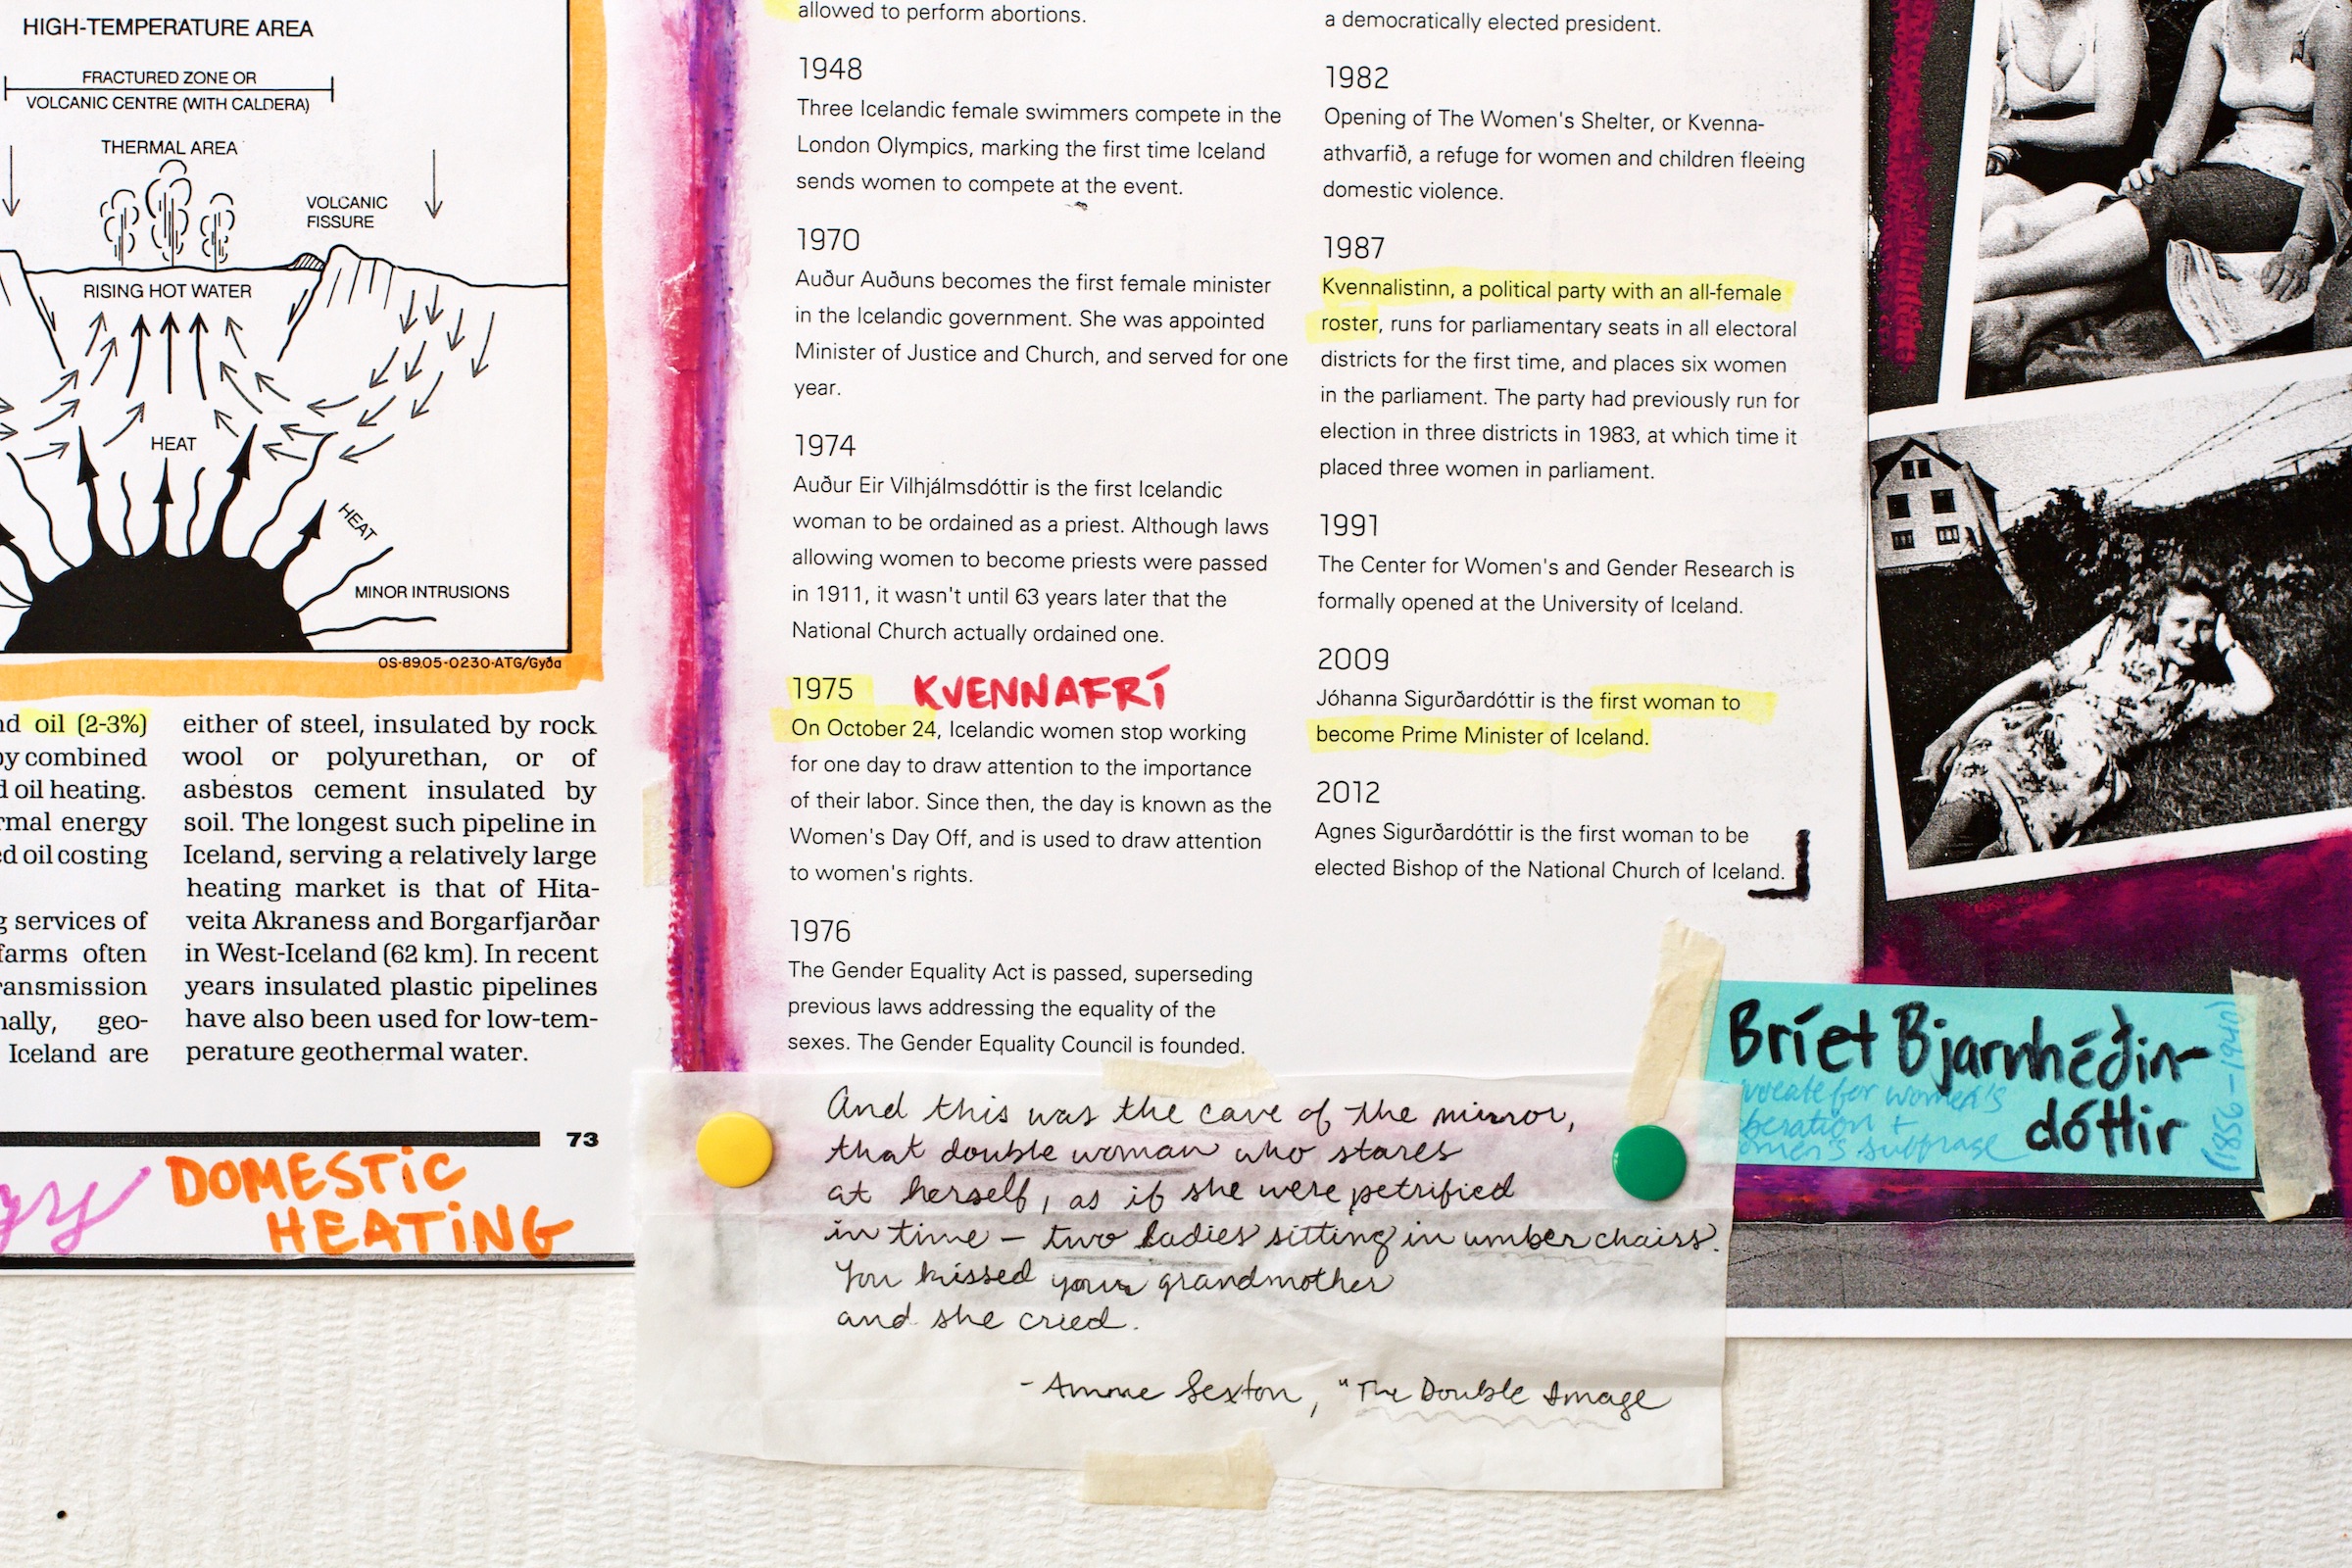 HIGH-TEMPERATURE AREA
FRACTURED ZONE OR
VOLCANIC CENTRE (WITH CALDERA)
THERMAL AREA
VOLCANIC
FISSURE
RISING HOT WATER
HEAT
HEAT
MINOR INTRUSIONS
OS-89.05-0230-ATG/Gyða
nd oil (2-3%)
by combined
d oil heating.
rmal energy
ed oil costing
g services of
farms often
ransmission
nally, geo-
Iceland are
either of steel, insulated by rock
wool or polyurethan, or of
asbestos cement insulated by
soil. The longest such pipeline in
Iceland, serving a relatively large
heating market is that of Hita-
veita Akraness and Borgarfjarðar
in West-Iceland (62 km). In recent
years insulated plastic pipelines
have also been used for low-tem-
perature geothermal water.
73
gy
DOMESTiC
HEATiNG
allowed to perform abortions.
1948
Three Icelandic female swimmers compete in the
London Olympics, marking the first time Iceland
sends women to compete at the event.
1970
Auður Auðuns becomes the first female minister
in the Icelandic government. She was appointed
Minister of Justice and Church, and served for one
year.
1974
Auður Eir Vilhjálmsdóttir is the first Icelandic
woman to be ordained as a priest. Although laws
allowing women to become priests were passed
in 1911, it wasn't until 63 years later that the
National Church actually ordained one.
1975 KVENNAFRÍ
On October 24, Icelandic women stop working
for one day to draw attention to the importance
of their labor. Since then, the day is known as the
Women's Day Off, and is used to draw attention
to women's rights.
1976
The Gender Equality Act is passed, superseding
previous laws addressing the equality of the
sexes. The Gender Equality Council is founded.
a democratically elected president.
1982
Opening of The Women's Shelter, or Kvenna-
athvarfið, a refuge for women and children fleeing
domestic violence.
1987
Kvennalistinn, a political party with an all-female
roster, runs for parliamentary seats in all electoral
districts for the first time, and places six women
in the parliament. The party had previously run for
election in three districts in 1983, at which time it
placed three women in parliament.
1991
The Center for Women's and Gender Research is
formally opened at the University of Iceland.
2009
Jóhanna Sigurðardóttir is the first woman to
become Prime Minister of Iceland.
2012
Agnes Sigurðardóttir is the first woman to be
elected Bishop of the National Church of Iceland.
Bríet Bjarnhéðin-
dóttir
vocate for women's
beration +
omen's suffrage
(1856-1940)
And this was the cave of the mirror,
that double woman who stares
at herself, as if she were petrified
in time – two ladies sitting in umber chairs.
You kissed your grandmother
and she cried.
- Anne Sexton, "The Double Image